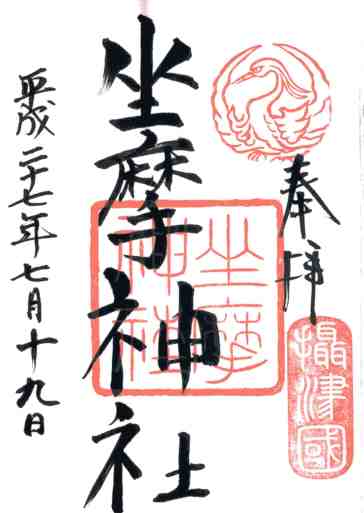 奉拝
攝津國
坐摩神社
坐摩神社
平成二十七年七月十九日